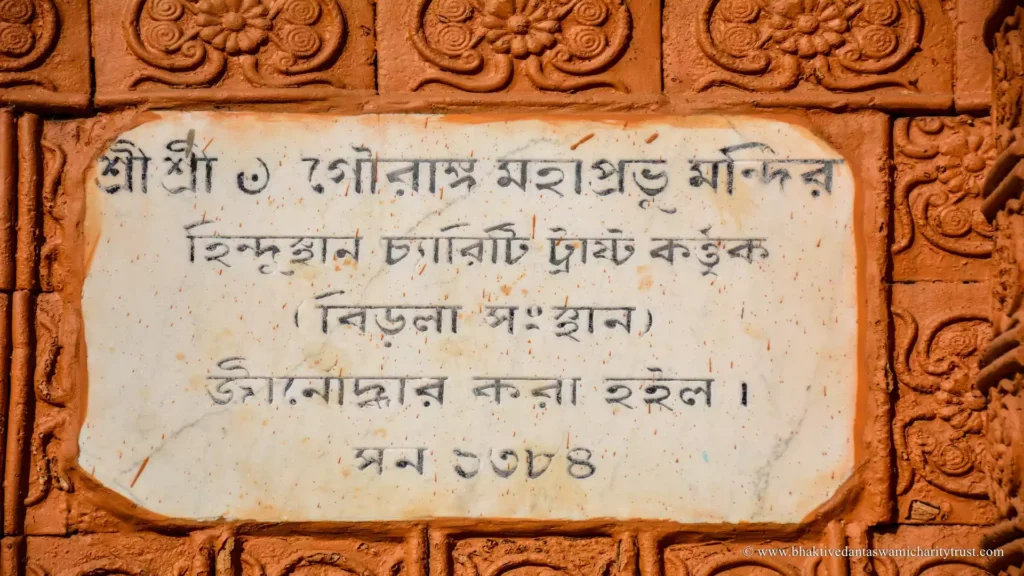 শ্রী শ্রী ৺ গৌরাঙ্গ মহাপ্রভু মন্দির
হিন্দুস্থান চ্যারিটি ট্রাষ্ট কর্ত্তৃক
(বিড়লা সংস্থান)
জীর্নোদ্ধার করা হইল ।
সন ১৩৮৪
© www.bhaktivedantaswamicharitytrust.com